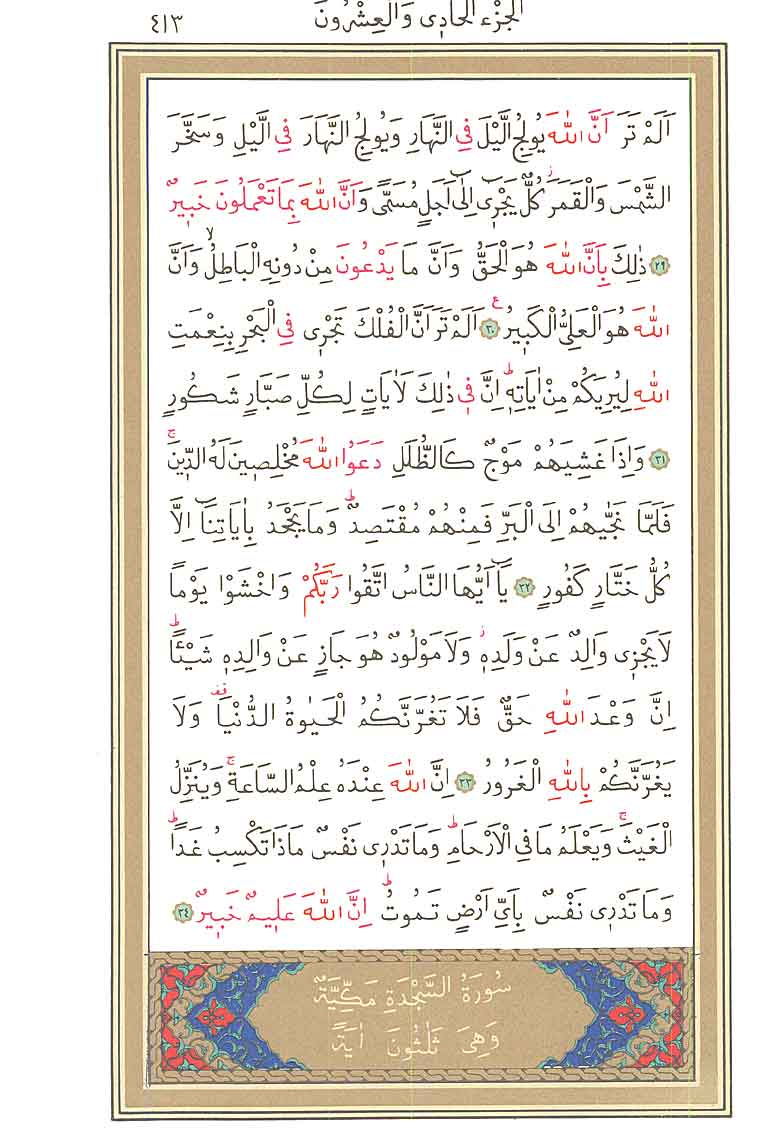 الجزء الحادى والعشرون ٤١٣
اَلَمْ تَرَ اَنَّ اللّٰهَ يُولِجُ الَّيْلَ فِي النَّهَارِ وَيُولِجُ النَّهَارَ فِي الَّيْلِ وَسَخَّرَ
الشَّمْسَ وَالْقَمَرَؗ كُلٌّ يَجْر۪ٓي اِلٰٓى اَجَلٍ مُسَمًّى وَاَنَّ اللّٰهَ بِمَا تَعْمَلُونَ خَب۪يرٌ
﴿٢٩﴾ ذٰلِكَ بِاَنَّ اللّٰهَ هُوَ الْحَقُّ وَاَنَّ مَا يَدْعُونَ مِنْ دُونِهِ الْبَاطِلُۙ وَاَنَّ
اللّٰهَ هُوَ الْعَلِيُّ الْكَب۪يرُ۟ ﴿٣٠﴾ اَلَمْ تَرَ اَنَّ الْفُلْكَ تَجْر۪ي فِي الْبَحْرِ بِنِعْمَتِ
اللّٰهِ لِيُرِيَكُمْ مِنْ اٰيَاتِه۪ۜ اِنَّ ف۪ي ذٰلِكَ لَاٰيَاتٍ لِكُلِّ صَبَّارٍ شَكُورٍ
﴿٣١﴾ وَاِذَا غَشِيَهُمْ مَوْجٌ كَالظُّلَلِ دَعَوُا اللّٰهَ مُخْلِص۪ينَ لَهُ الدّ۪ينَۚ
فَلَمَّا نَجّٰيهُمْ اِلَى الْبَرِّ فَمِنْهُمْ مُقْتَصِدٌۜ وَمَا يَجْحَدُ بِاٰيَاتِنَٓا اِلَّا
كُلُّ خَتَّارٍ كَفُورٍ ﴿٣٢﴾ يَٓا اَيُّهَا النَّاسُ اتَّقُوا رَبَّكُمْ وَاخْشَوْا يَوْماً
لَا يَجْز۪ي وَالِدٌ عَنْ وَلَدِه۪ؗ وَلَا مَوْلُودٌ هُوَ جَازٍ عَنْ وَالِدِه۪ شَيْـٔاًۜ
اِنَّ وَعْدَ اللّٰهِ حَقٌّ فَلَا تَغُرَّنَّكُمُ الْحَيٰوةُ الدُّنْيَا۠ وَلَا
يَغُرَّنَّكُمْ بِاللّٰهِ الْغَرُورُ ﴿٣٣﴾ اِنَّ اللّٰهَ عِنْدَهُ عِلْمُ السَّاعَةِۚ وَيُنَزِّلُ
الْغَيْثَۚ وَيَعْلَمُ مَا فِي الْاَرْحَامِۜ وَمَا تَدْر۪ي نَفْسٌ مَاذَا تَكْسِبُ غَداًۜ
وَمَا تَدْر۪ي نَفْسٌ بِاَيِّ اَرْضٍ تَمُوتُۜ اِنَّ اللّٰهَ عَل۪يمٌ خَب۪يرٌ ﴿٣٤﴾
سُورَةُ السَّجْدَةِ مَكِّيَّةٌ
وَهِيَ ثَلٰثُونَ اٰيَةً